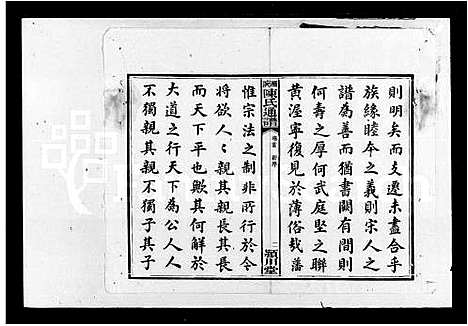 則明矣而支遷未盡合乎
族緣睦夲之義則宋人之
譜為善而猶書闕有間則
何壽之厚何武庭堅之聯
黃渥寧復見於薄俗哉藩
陳氏通譜
卷首 新序
二
潁川堂
惟宗法之制非所行於今
將欲人〻親其親長其長
而天下平也歟其何解於
大道之行天下為公人人
不獨親其親不獨子其子